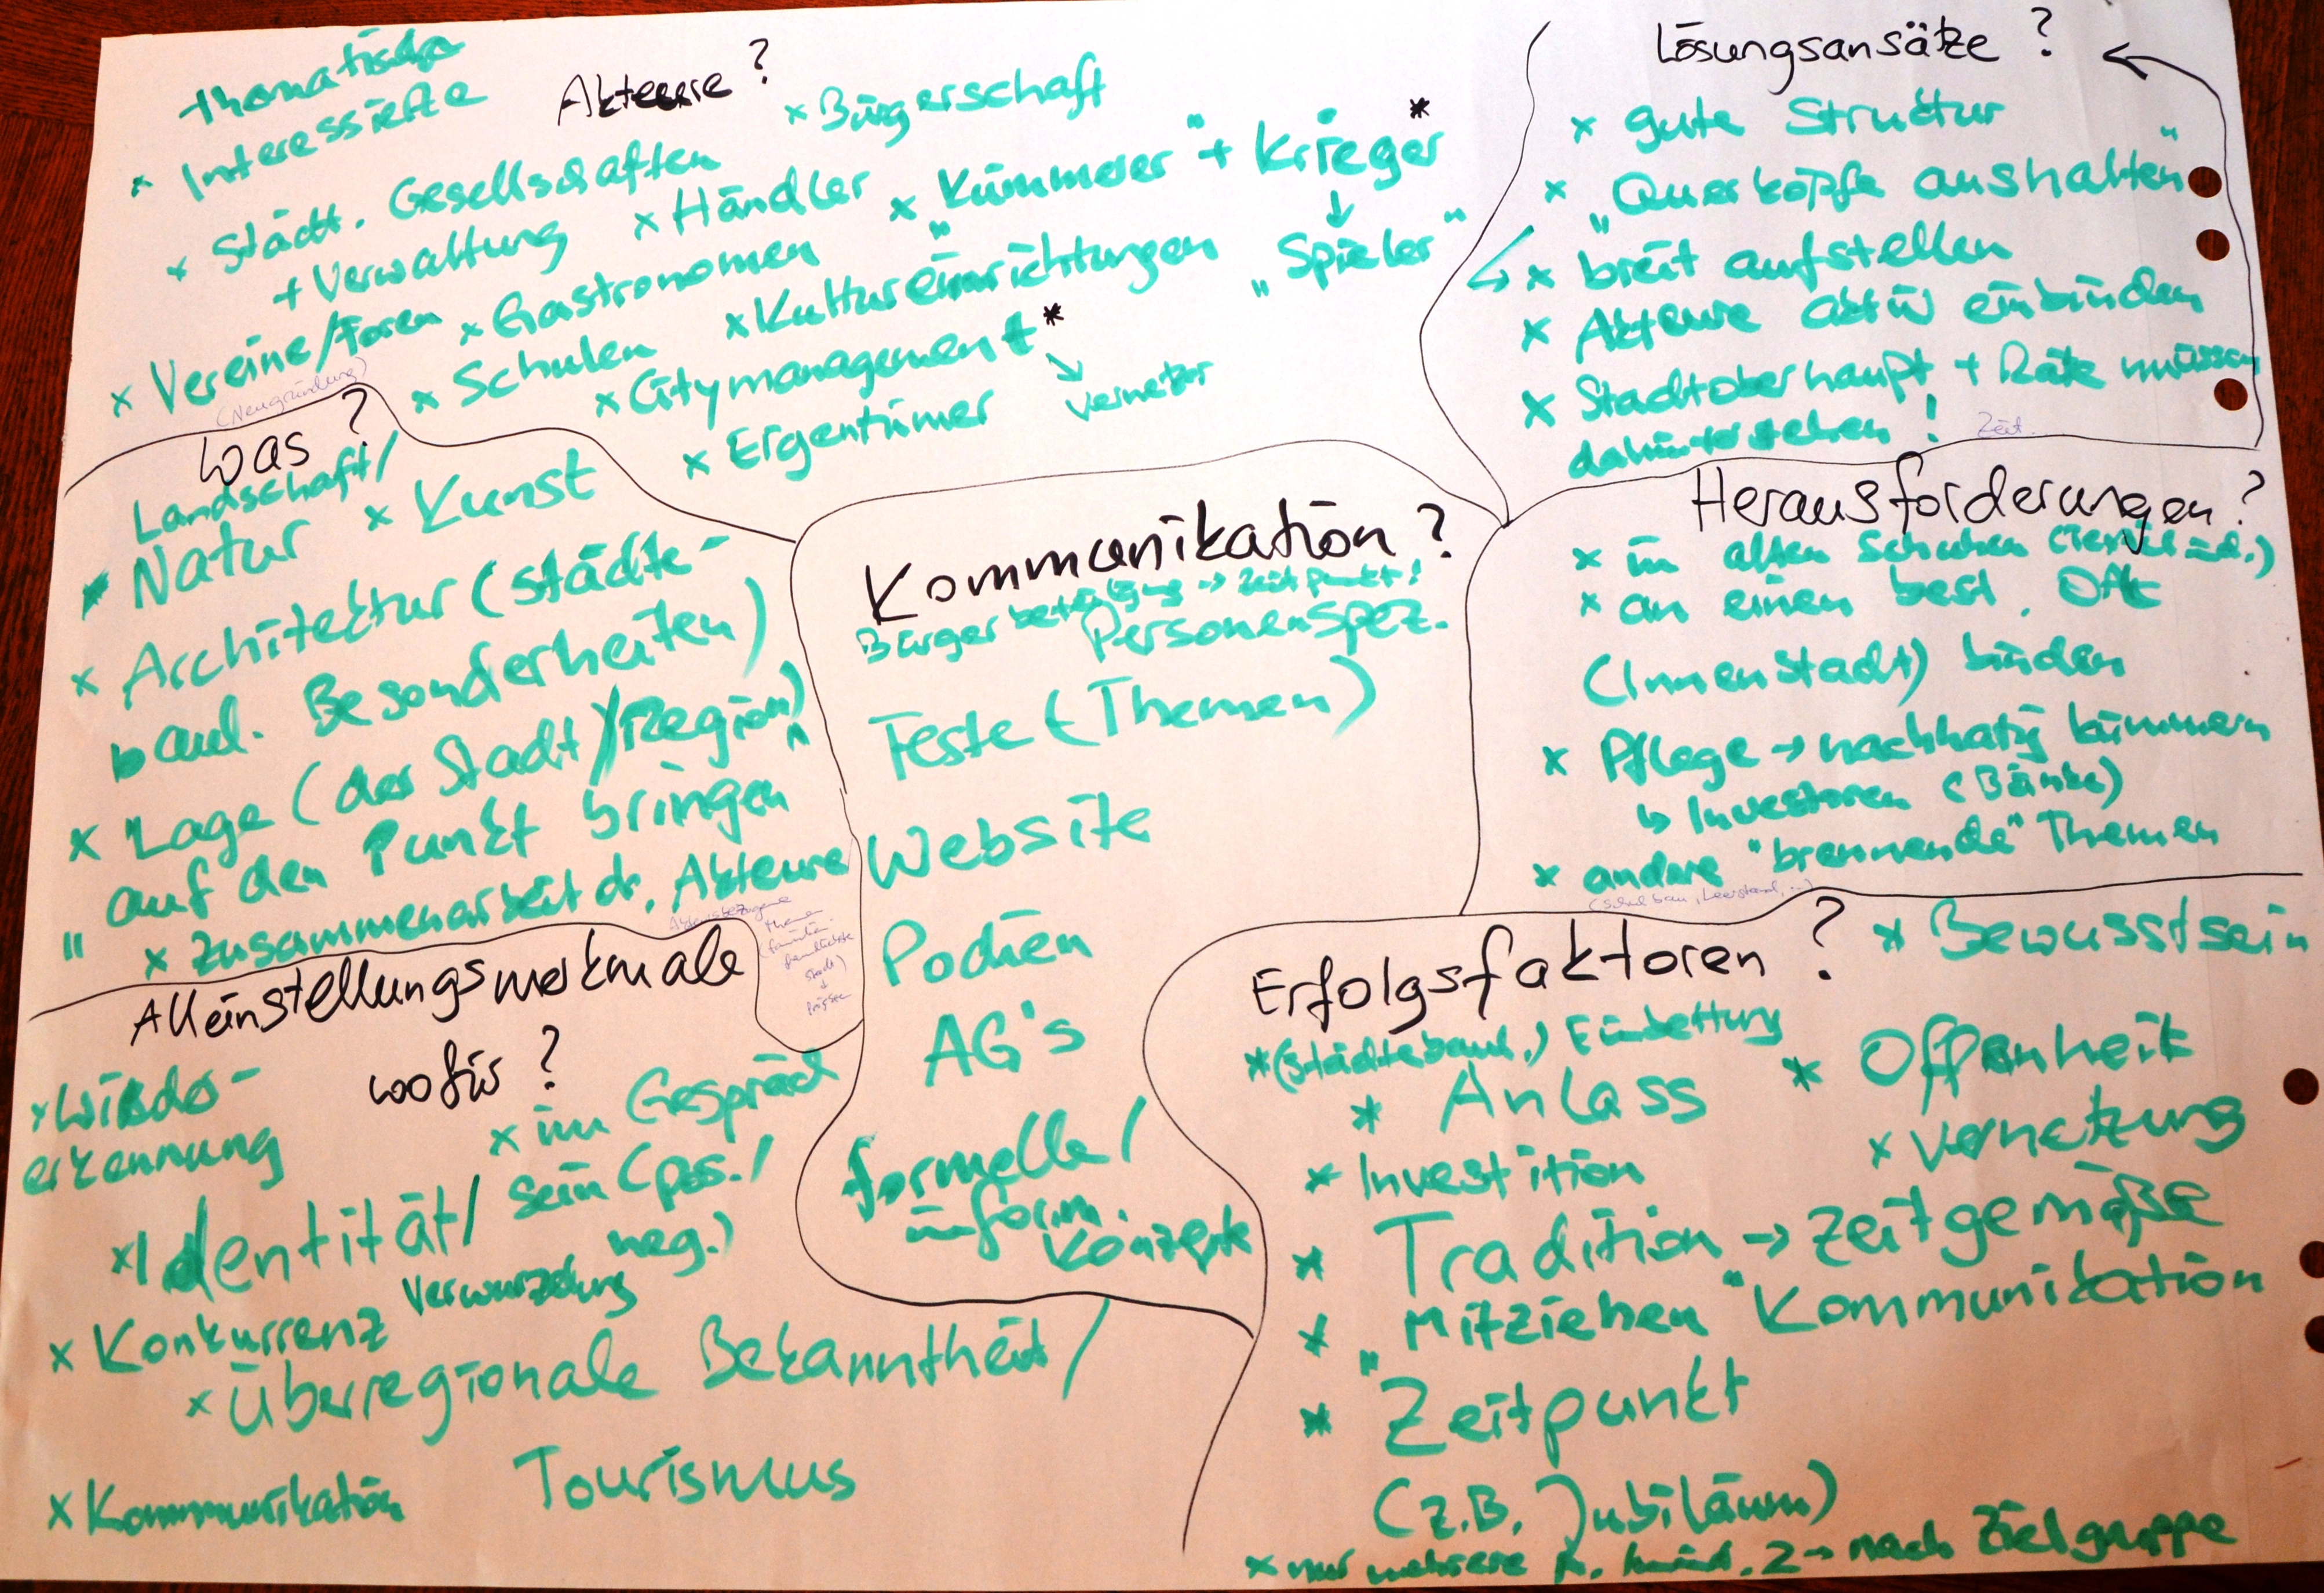 Akteure?
Thematische
x Interessierte
x Bürgerschaft
x Städt. Gesellschaften
+ Verwaltung
x Händler
x „Kümmerer" + Krieger*
↓
„Spieler"
x Vereine/Foren
(Neugründung)
x Gastronomen
x Kultureinrichtungen
x Schulen
x Citymanagement*
↘ Vernetzer
x Eigentümer
Lösungsansätze?
x gute Struktur
x „Querköpfe aushalten"
x breit aufstellen
x Akteure aktiv einbinden
x Stadtoberhaupt + Räte müssen
dahinterstehen!
Zeit
Was?
Landschaft/
x Natur x Kunst
x Architektur (städte-
baul. Besonderheiten)
x Lage (der Stadt)/Region)
„auf den Punkt bringen"
x Zusammenarbeit d. Akteure
Kommunikation?
Bürgerbeteiligung → Zeitpunkt!
Personenspez.
Feste (Themen)
Website
Podien
AG's
formelle/
inform.
Konzepte
Herausforderungen?
x in alten Schuhen (Textilind.)
x an einen best. Ort
(Innenstadt) binden
x Pflege → nachhaltig kümmern
↳ Investoren (Bänke)
x andere "brennende" Themen
(Schulbau, Leerstand, ...)
Alleinstellungsmerkmale
wofür?
x Wieder-
erkennung
x im Gespräch
sein (pos./
neg.)
x Identität/
Verwurzelung
x Konkurrenz
x Überregionale Bekanntheit/
Tourismus
x Kommunikation
Erfolgsfaktoren?
x Bewusstsein
x (städtebaul.) Einbettung
x Anlass
x Offenheit
x Investition
x Vernetzung
x Tradition → zeitgemäße
Kommunikation
x „Mitziehen"
x Zeitpunkt
(z.B. Jubiläum)
x nur mehrere
2 → nach Zielgruppe